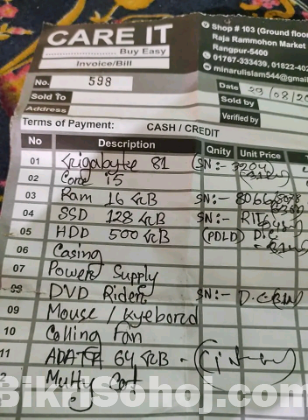 CARE IT
Buy Easy
Invoice/Bill
Shop # 103 (Ground floor
Raja Rammohon Market
Rangpur-5400
01767-333439, 01822-402
minarulislam544@gmail.
No. 598
Date 29/08/20
Sold To
Sold by
Address
Verified by
Terms of Payment: CASH / CREDIT
No Description Qnity Unit Price
01 Gigabyte 81 (SN:-
02 Core i5
03 Ram 16 GB SN:- 8066
04 SSD 128 GB SN:-
05 HDD 500 GB
06 Casing
07 Power Supply
08 DVD Rider SN:-
09 Mouse / Kyebored
10 Colling Fan
11 64 GB -
2 Card
BikriSohoj.com